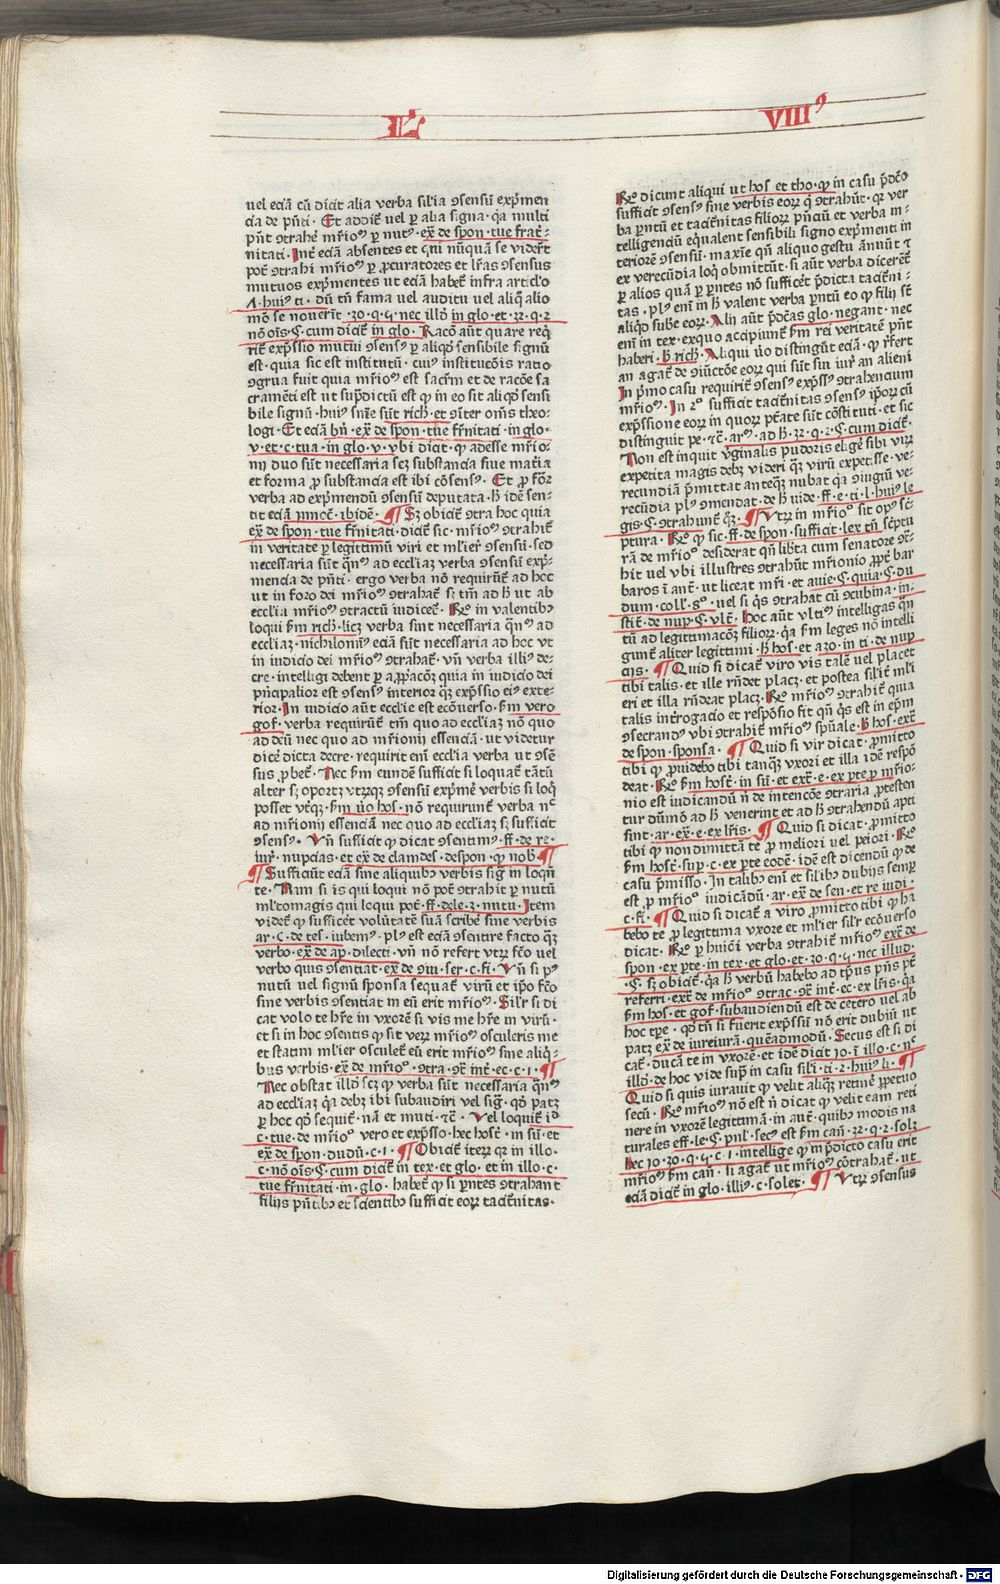 L
VIIIꝰ
uel eciā cū dicit alia verba sil'ia ↄsensū exp̄men
cia de pn̄ti · Et addit᷑ uel ꝑ alia signa · qa multi
pn̄t ↄtrahe' mr̄io⁹ ꝑ nut⁹ · ex̄ de spon · tue frat᷑ ·
nitati · Int᷑ eciā absentes et qui nūquā se viderūt
pot᷑ ↄtrahi mr̄io⁹ ꝑ ꝓcuratores et lr̄as ↄsensus
mutuos exp̄mentes ut eciā habet᷑ infra articl'o
· hui⁹ ti · dū tn̄ fama uel auditu uel aliq̊ alio
mō se nouerit · 30 · q · 5 · nec illō in glo · et · 22 · q · 2
nō oīs · ꝯ · cum dicit᷑ in glo · Racō aūt quare req̊
rit᷑ exp̄ssio mutui ↄsens⁹ ꝑ aliqō sensibile signū
est · quia sic est institutū · cui⁹ institucōis racio
ↄgrua fuit quia mr̄io⁹ est sacr̄m et de racōe sa
cramēti est ut sup̄dictū est ꝙ in eo sit aliqō sensi
bile signū · hui⁹ snīe sūt rich̄ · et ↄīter om̄s theo-
logi · Et eciā bn̄ · ex̄ de spon · tue fr̄nitati · in glo ·
v · et · c · tua · in glo · v · vbi dicit · ꝙ adesse mr̄io-
nij duo sūt necessaria scz substancia siue mat̄ia
et forma ꝑ substancia est ibi cōsens⁹ · Et ꝑ fōr
verba ad exp̄mendū ↄsensū deputata · h̄ idē sen-
tit eciā īnnoc᷑ · ibidē · ¶ Sz obicit᷑ ↄtra hoc quia
ex̄ de spon · tue fr̄nitati · dicit᷑ sic · mr̄io⁹ ↄtrahit᷑
in veritate ꝑ legittimū viri et ml'ier' ↄsensū · sed
necessaria sūt qn̄⁹ ad eccl'iaz verba ↄsensū exp̄-
mencia de pn̄ti · ergo verba nō requirūt᷑ ad hoc
ut in foro dei mr̄io⁹ ↄtrahat᷑ sz tm̄ ad h̄ ut ab
eccl'ia mr̄io⁹ ↄtractū iudicet᷑ · Rn̄ in valentibꝯ
loqui s̄m rich̄ · licz verba sint necessaria qn̄⁹ ad
eccl'iaz · nichilomin⁹ eciā sūt necessaria ad hoc ut
in iudicio dei mr̄io⁹ ↄtrahat᷑ · vn̄ verba illi⁹ de-
cre · intelligi debent ꝑ a ꝓp̄iacōz quia in iudicio dei
pn̄cipalior est ↄsens⁹ interior qz exp̄ssio ei⁹ exte-
rior · In iudicio aūt eccl'ie est ecōuerso · s̄m vero
gof᷑ · verba requirūt᷑ tm̄ quo ad eccl'iaz nō quo
ad deū nec quo ad mr̄ionij essenciā · ut videtur
dice' dicta decre · requirit enī eccl'ia verba ut ↄsē
sus ꝓbet᷑ · Nec s̄m eundē sufficit si loquat᷑ tātū
alter sz oportz utrqz ↄsensū exp̄me' verbis si loq̊
posset utqz · s̄m ūo hos · nō requirunt᷑ verba nᶜ
ad mr̄ionij essenciā nec quo ad eccl'iaz sz sufficit
ↄsens⁹ · Vn̄ sufficit ꝙ dicat ↄsentim⁹ · ff · de re ·
iur̄ · nupcias · et ex̄ de clandes · despon · ꝙ nob̄ ¶
¶ Sufficiūt eciā sine aliquibꝯ verbis sig᷑ in loqn̄
te · Nam si is qui loqui nō pot᷑ ↄtrahit ꝑ nutū
ml'tomagis qui loqui pot᷑ · ff · dele · 3 · nutu · Item
videt᷑ ꝙ sufficēt volūtatē suā scribe' sine verbis
ar · c · de tes · iubem⁹ · pl⁹ est eciā ↄsentire facto qz
verbo · ex̄ de ap · dilecti · vn̄ nō refert utrz fc̄o uel
verbo quis ↄsentiat · ex̄ de ↄiu · ser · c · fi · Vn̄ si p⁹
nutū uel signū sponsa sequat᷑ virū et ip̄o fc̄o
sine verbis ↄsentiat in eū erit mr̄io⁹ · Sil'r si di
cat volo te hr̄e in vxorē si vis me hr̄e in virū ·
et si in hoc ↄsentis ꝙ sit verꝝ mr̄io⁹ osculeris me
et statim ml'ier osculet᷑ eū erit mr̄io⁹ sine aliq̊ ·
bus verbis · ex̄ de mr̄io⁹ · ↄtra · ↄ᷑ int᷑ · ec · c · 1 · ¶
Nec obstat illō scz ꝙ verba sūt necessaria qn̄⁹
ad eccl'iaz qa debz ibi subaudiri vel sig᷑ · qō patz
ꝑ hoc qō sequit᷑ · nā et muti · ⁊c᷑ · Vel loquit᷑ id̄
c · tue · de mr̄io⁹ vero et exp̄sso · hec host᷑ · in sū · et
ex̄ de spon · dudū · c · 1 · ¶ Obicit᷑ iterꝝ qr in illo ·
c · nō oīs · ꝯ · cum dicit᷑ in tex · et glo · et in illo · c ·
tue fr̄nitati · in · glo · habet᷑ ꝙ si pn̄tes ↄtrahant
filijs pn̄tibꝯ et scientibꝯ sufficit eoꝝ tacit᷑nitas ·
Rn̄ dicunt aliqui ut hos · et tho · ꝙ in casu p̄dc̄o
sufficit ↄsens⁹ sine verbis eoꝝ q̊ ↄtrahūt · qr ver
ba pn̄tū et tacit᷑nitas filioꝝ pn̄ciū et verba in-
telligenciū equalent sensibili signo exp̄menti in
teriorē ↄsensū · maxīe qn̄ aliquo gestu ānuūt ⁊
ex verecūdia loq̊ obmittūt · si aūt verba dicerēt᷑
ꝑ alios quā ꝑ pn̄tes nō sufficēt p̄dicta tacit᷑ni-
tas · pl⁹ enī in h̄ valent verba pn̄tū eo ꝙ filij sūt
aliqō sube eoꝝ · Alij aūt p̄dc̄as glo · negant · nec
enī in tex · exquo accipiunt᷑ s̄m rei veritatē pn̄t
haberi · h̄ rich̄ · Aliqui ūo distingūt eciā · ꝙ r̄fert
an agat᷑ de ↄiūctōe eoꝝ qui sūt sui iur̄ an alieni
In p̄mo casu requirit᷑ ↄsens⁹ exp̄ss⁹ ↄtrahencium
mr̄io⁹ · In 2⁰ sufficit tacit᷑nitas ↄsens⁹ ip̄oꝝ cū
exp̄ssione eoꝝ in quoꝝ pt̄ate sūt cōstituti · et sic
distinguit pe · ⁊c᷑ · ar⁹ · ad h̄ · 32 · q · 2 · ꝯ · cum dicit᷑ ·
Non est inquit v̄ginalis pudoris elige' sibi virꝝ
expetita magis debz videri qz virū expetisse · ve-
recundiā p̄mittat anteqz nubat qa ↄiugiū ve-
recūdia pl⁹ ↄmendat · de h̄ uide · ff · e · ti · l · hui⁹ le
gis · ꝯ · ↄtrahunt᷑ qz · ¶ Utrꝝ in mr̄io⁹ sit op⁹ sc̄-
ptura · Rn̄ ꝙ sic · ff · de spon · sufficit · lex tn̄ sc̄ptu
rā de mr̄io⁹ desiderat qn̄ lib̄ta cum senatore ↄtr̄-
hit uel vbi illustres ↄtrahūt mr̄ionio ꝓpt᷑ bar
baros ī ant᷑ · ut liceat mr̄i · et auie · ꝯ · quia · ꝯ · du
dum · coll' · 8⁰ · uel si q̊s ↄtrahat cū ↄcubina · in-
stit᷑ · de nup · ꝯ · vlt᷑ · Hoc aūt vlti⁹ intelligas qn̄
tū ad legittimacōz filioꝝ · qa s̄m leges nō intelli
gunt᷑ aliter legittimi · h̄ hos · et azo · in ti · de nup
cijs · ¶ Quid si dicat᷑ viro vis talē uel placet
tibi talis · et ille rn̄det placz · et postea sil'it᷑ ml'i
eri et illa rn̄deat placz · Rn̄ mr̄io⁹ ↄtrahit᷑ quia
talis int᷑rogacio et respōsio fit qn̄ q̊s est in ep̄m
ↄsecrand⁹ vbi ↄtrahit᷑ mr̄io⁹ sp̄uale · h̄ hos · ext᷑
de spon · sponsa · ¶ Quid si vir dicat · ꝓmitto
tibi ꝙ ꝓuidebo tibi tanqz vxori et illa idē respō
deat · Rn̄ s̄m host᷑ · in sū · et ext᷑ · e · ex pte ꝑ mr̄io-
nio est iudicandū n̄ de intencōe ↄtraria ꝓtesten
tur dūmō ad h̄ venerint et ad h̄ ↄtrahendū apti
sint · ar · ex̄ · e · ex lr̄is · ¶ Quid si dicat · ꝓmitto
tibi ꝙ nondimittā te ꝓ meliori uel peiori · Rn̄
s̄m host᷑ · sup · c · ex pte eodē · idē est dicendū ꝙ de
casu p̄misso · In talibꝯ enī et sil'ibꝯ dubijs semꝑ
est ꝓ mr̄io⁹ iudicādū · ar · ex̄ de sen · et re iudi ·
c · fi · ¶ Quid si dicat᷑ a viro ꝓmitto tibi ꝙ ha
bebo te ꝓ legittima vxore et ml'ier sil'r ecōuerso
dicat · Rn̄ ꝑ hui⁹cī verba ↄtrahit᷑ mr̄io⁹ ext᷑ de
spon · ex pte · in tex · et glo · et 30 · q · 5 · nec illud ·
· ꝯ · sz obicit᷑ · qa h̄ verbū habebo ad tp̄us pn̄s pt᷑
referri · ext᷑ de mr̄io⁹ ↄtrac · ↄ᷑ int᷑ · ec · ex lr̄is · qa
s̄m hos · et gof᷑ · subaudiendū est de cetero uel ab
hoc tp̄e · qō tn̄ si fuerit exp̄ssū nō erit dubiū ut
patz ex̄ de iureiurā · quēadmodū · Secus est si di
cat᷑ · ducā te in vxorē · et idē dicit 10 · ī illo · c · nᶜ
illō · de hoc vide sup̄ in casu sil'i · ti · 2 · hui⁹ li · ¶
Quid si quis iurauit ꝙ velit aliqz retine' ꝑpetuo
secū · Rn̄ mr̄io⁹ nō est n̄ dicat ꝙ velit eam reti
nere in vxorē legittimā · in aut᷑ · quibꝯ modis na
turales eff · le · ꝯ · pnl' · sec⁹ est s̄m can̄ · 22 · q · 2 · solz
hec 10 · 30 · q · 5 · c · 1 · intellige ꝙ in p̄dicto casu erit
mr̄io⁹ s̄m can̄ · si agat᷑ ut mr̄io⁹ cōtrahat᷑ · ut
eciā dicit᷑ in glo · illi⁹ · c · solet · ¶ Utrꝝ ↄsensus
Digitalisierung gefördert durch die Deutsche Forschungsgemeinschaft - DFG